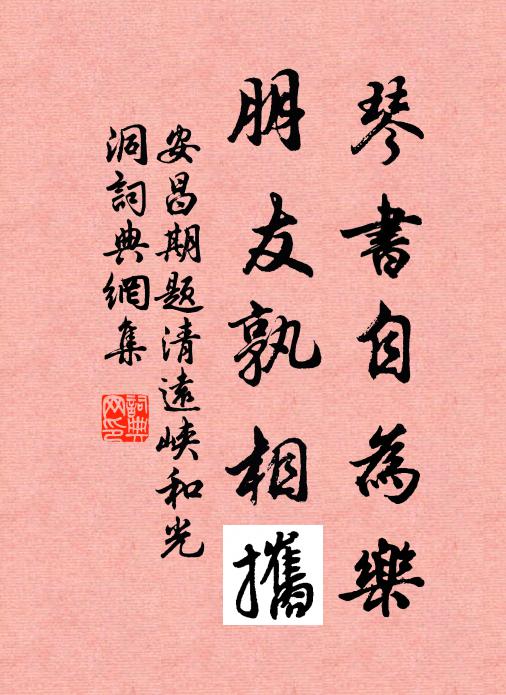 琴書自為樂
朋友孰相攜
安昌期題清遠峽和光
洞詞典網集
詞典網印